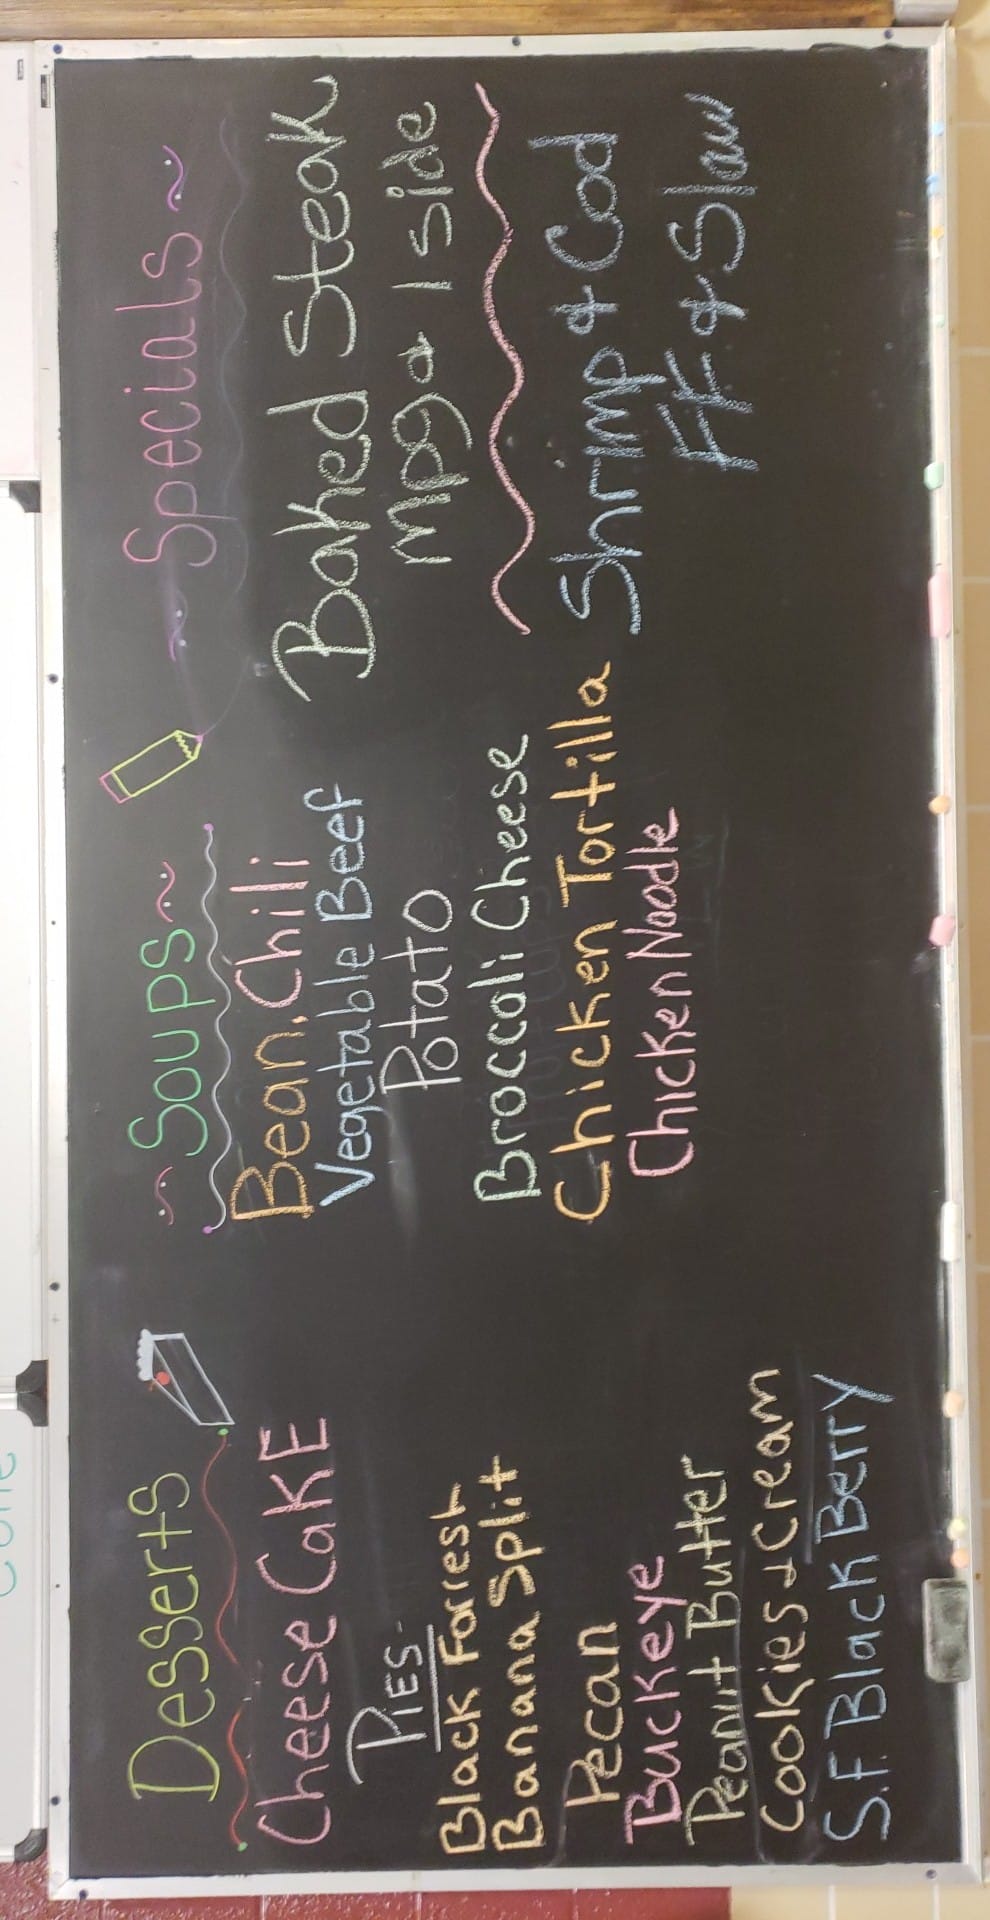 Desserts
Cheese CaKE
PIES-
Black Forrest
Banana Split
Pecan
Buckeye
Peanut Butter
Cookies & Cream
S.F. Black Berry
~Soups~
Bean. Chili
Vegetable Beef
Potato
Broccoli Cheese
Chicken Tortilla
Chicken Noodle
~Specials~
Baked Steak
mpg & 1 side
Shrimp & Cod
FF & Slaw